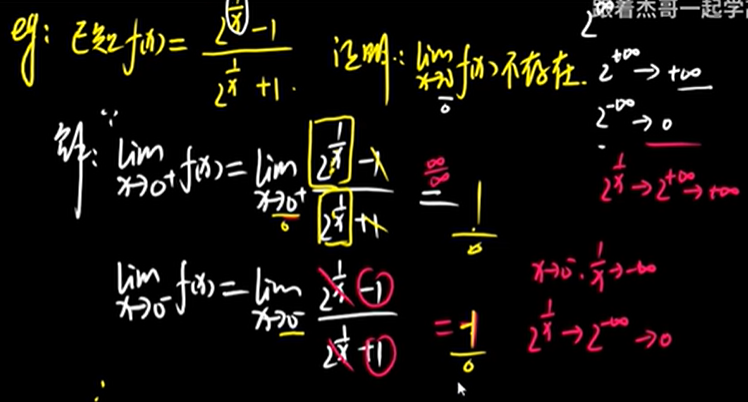 跟着杰哥一起学
eg: 已知 f(x) = (2^{1/x} - 1) / (2^{1/x} + 1). 证明: lim_{x→0} f(x) 不存在.
2^∞
2^{+∞} → +∞
2^{-∞} → 0
2^{1/x} → 2^{+∞} → +∞
解: ∵ lim_{x→0⁺} f(x) = lim_{x→0⁺} (2^{1/x} - 1) / (2^{1/x} + 1) =^{∞/∞} 1
x→0⁻. 1/x → -∞
lim_{x→0⁻} f(x) = lim_{x→0⁻} (2^{1/x} - 1) / (2^{1/x} + 1) = -1
2^{1/x} → 2^{-∞} → 0